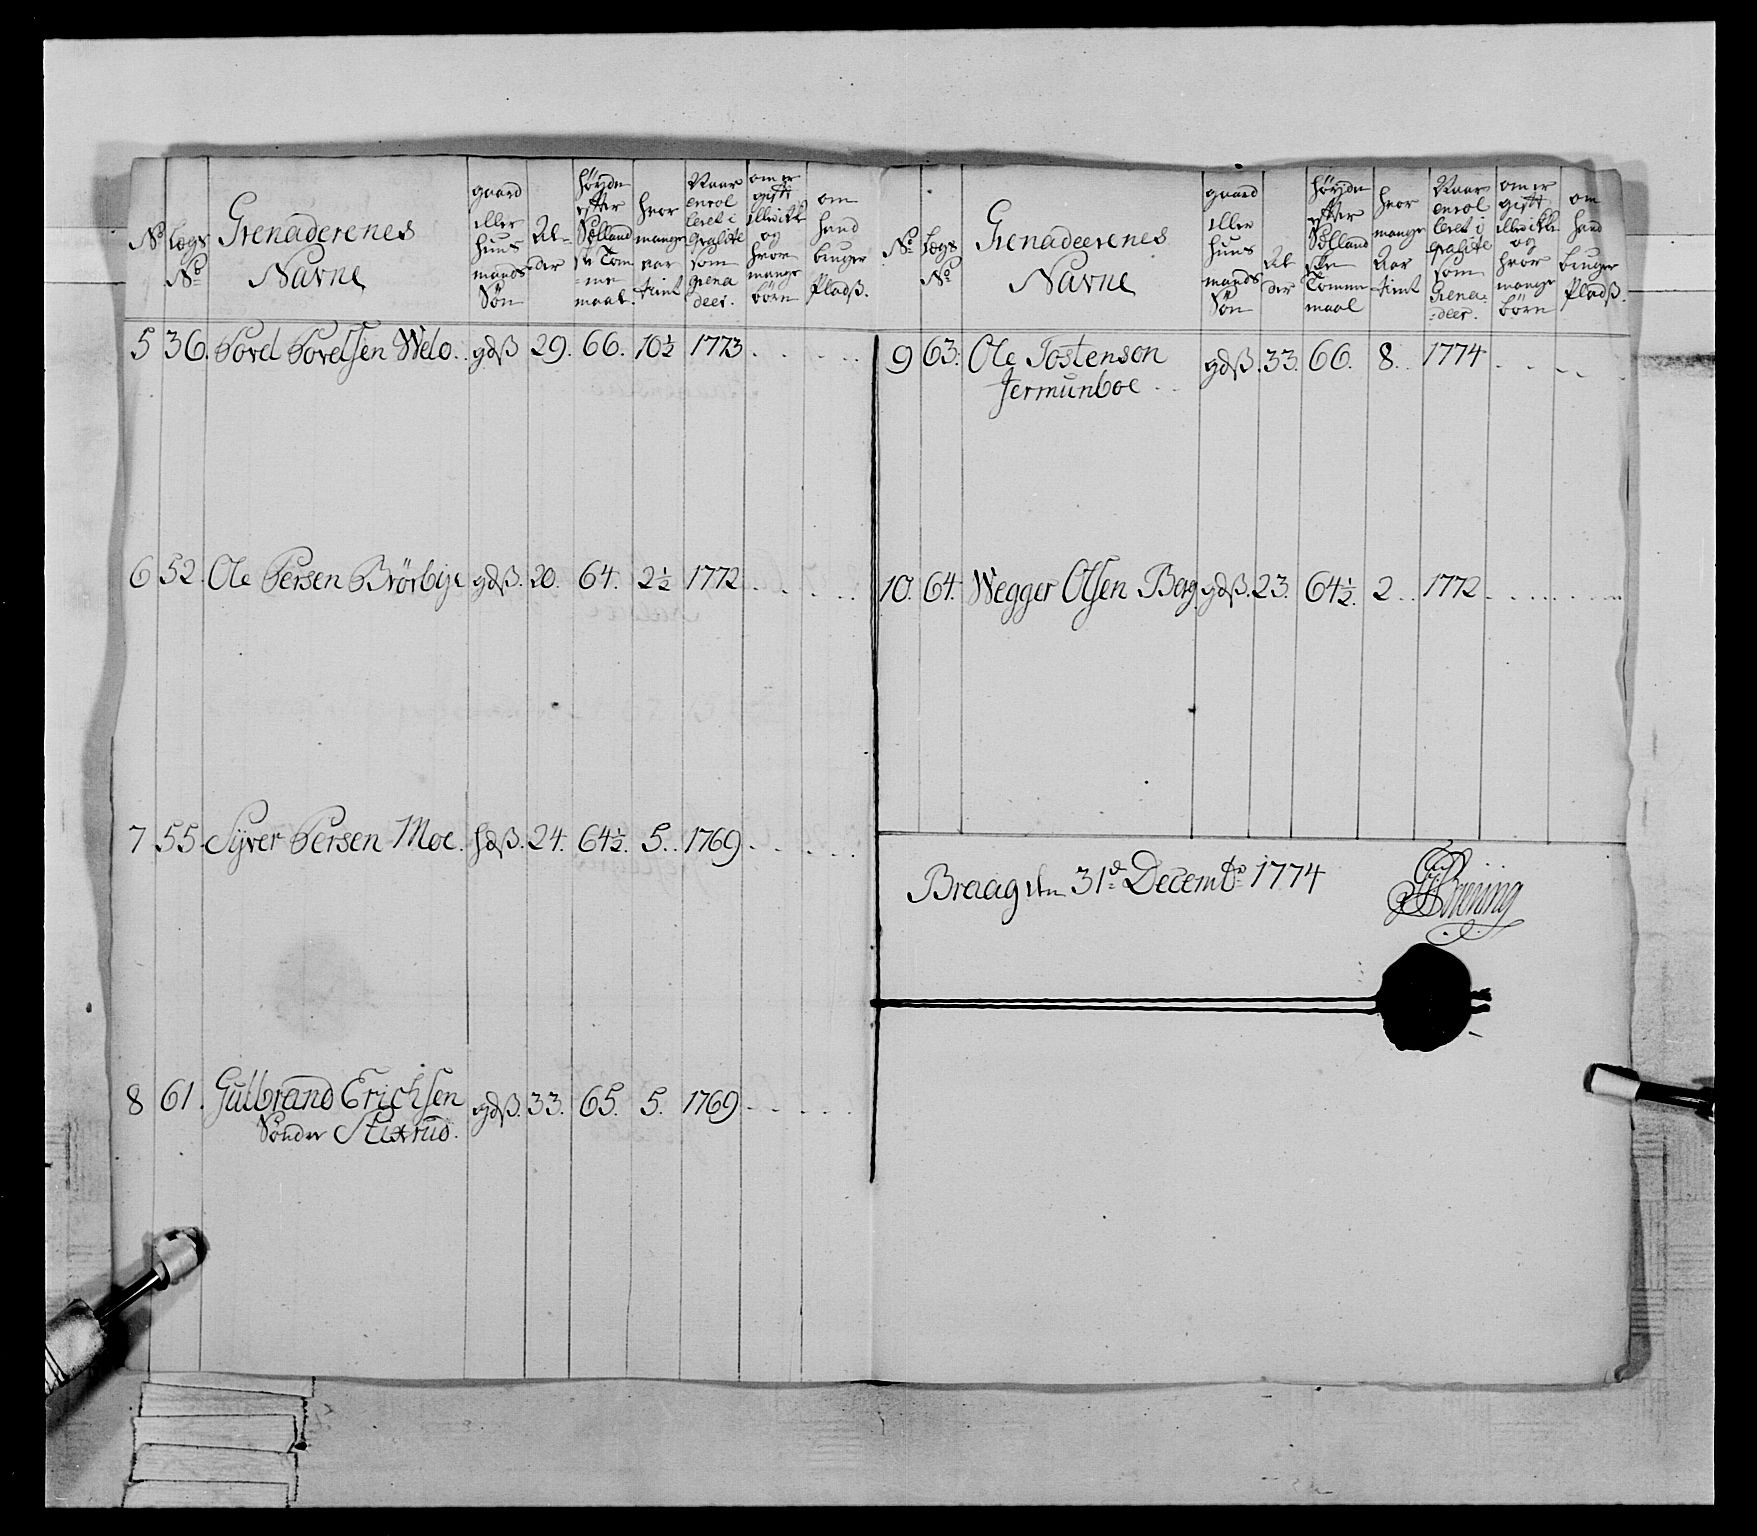 No Lægs No Grenaderenes Navne gaard eller huus mands Søn Al= der høyde efter Siælland ske Tom me maal hvor mange aar tient Naar enrol leret i qvalité som Grena deer. om er gift eller ikke og hvor mange børn om hand bruger Pladß.
5 36. Povel Povelsen Welo. gdß 29. 66. 10½ 1773
6 52. Ole Persen Brörbye gdß. 20. 64. 2½ 1772
7 55. Syver Persen Moe. hdß. 24. 64½. 5. 1769
8 61. Gulbrand Erichsen gdß. 33. 65. 5. 1769
Sönder Stixrud.
No Lægs No Grenadeerenes Navne gaard eller huus mands Søn Al der høyde efter Siælland ske Tomme maal hvor mange Aar tient Naar enrol leret i qvalité som Grena: :deer. om er gift eller ikke og hvor mange børn om hand bruger Pladß.
9 63. Ole Tostensen gdß. 33. 66. 8. 1774
Jermunboe
10. 64. Wegger Olsen Berg gdß. 23. 64½. 2. 1772
Braag den 31d Decembr 1774